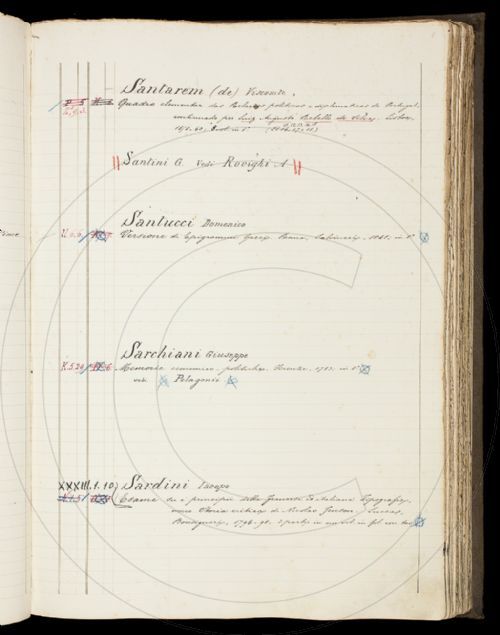 Santarem (de) Visconte.
Quadro elementar das Relações politicas e diplomaticas de Portugal,
continuado per Luiz Augusto Rebello da Silva. Lisboa,
Santini G. Vedi Rovighi A
Santucci Domenico
Versione di Epigrammi Greci. Roma, Salviucci, 1841, in 8°
Sarchiani Giuseppe
K.5.20
Memorie economico politiche. Firenze, 1783, in 8°
ved. Pelagonii
XXXIII.1.10 Sardini Iacopo
Esame su i principii della Francese ed Italiana Tipografia,
ovvero Storia critica di Nicolao Jenson. Lucca,
Bonsignori, 1796-98. 3 parti in un vol. in fol. con tav.